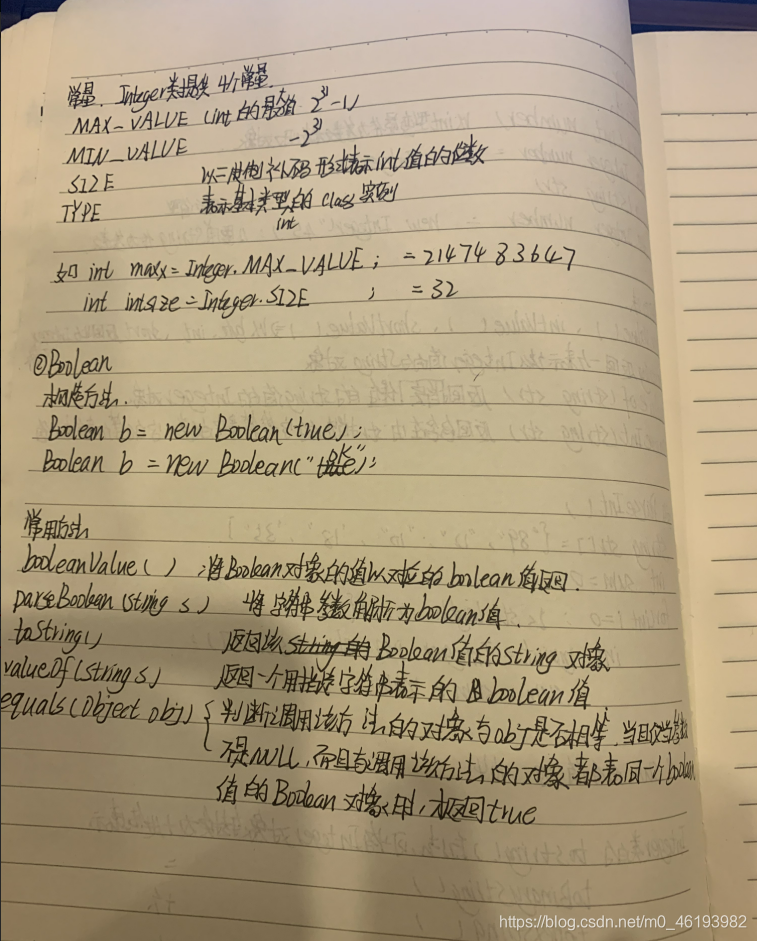 常量. Integer类提供 4个常量.
MAX_VALUE (int 的最大值 2^31-1)
MIN_VALUE -2^31
SIZE 以二进制补码形式表示int值的位数
TYPE 表示基本类型的 class 实例
int
如 int maxx=Integer.MAX_VALUE; =2147483647
int intsize=Integer.SIZE ; =32
②Boolean
构造方法.
Boolean b = new Boolean(true);
Boolean b = new Boolean(" ");
常用方法
booleanValue() :将Boolean对象的值以对应的boolean值返回.
parseBoolean(string s) 将字符串参数解析为boolean值.
toString() 返回该 Boolean值的String 对象
valueOf(string s) 返回一个用指定字符串表示的 boolean 值
equals(Object obj) { 判断调用该方法的对象与obj是否相等. 当且仅当参数
不是NULL, 而且与调用该方法的对象都表同一个boolean
值的Boolean 对象时, 才返回true
https://blog.csdn.net/m0_46193982